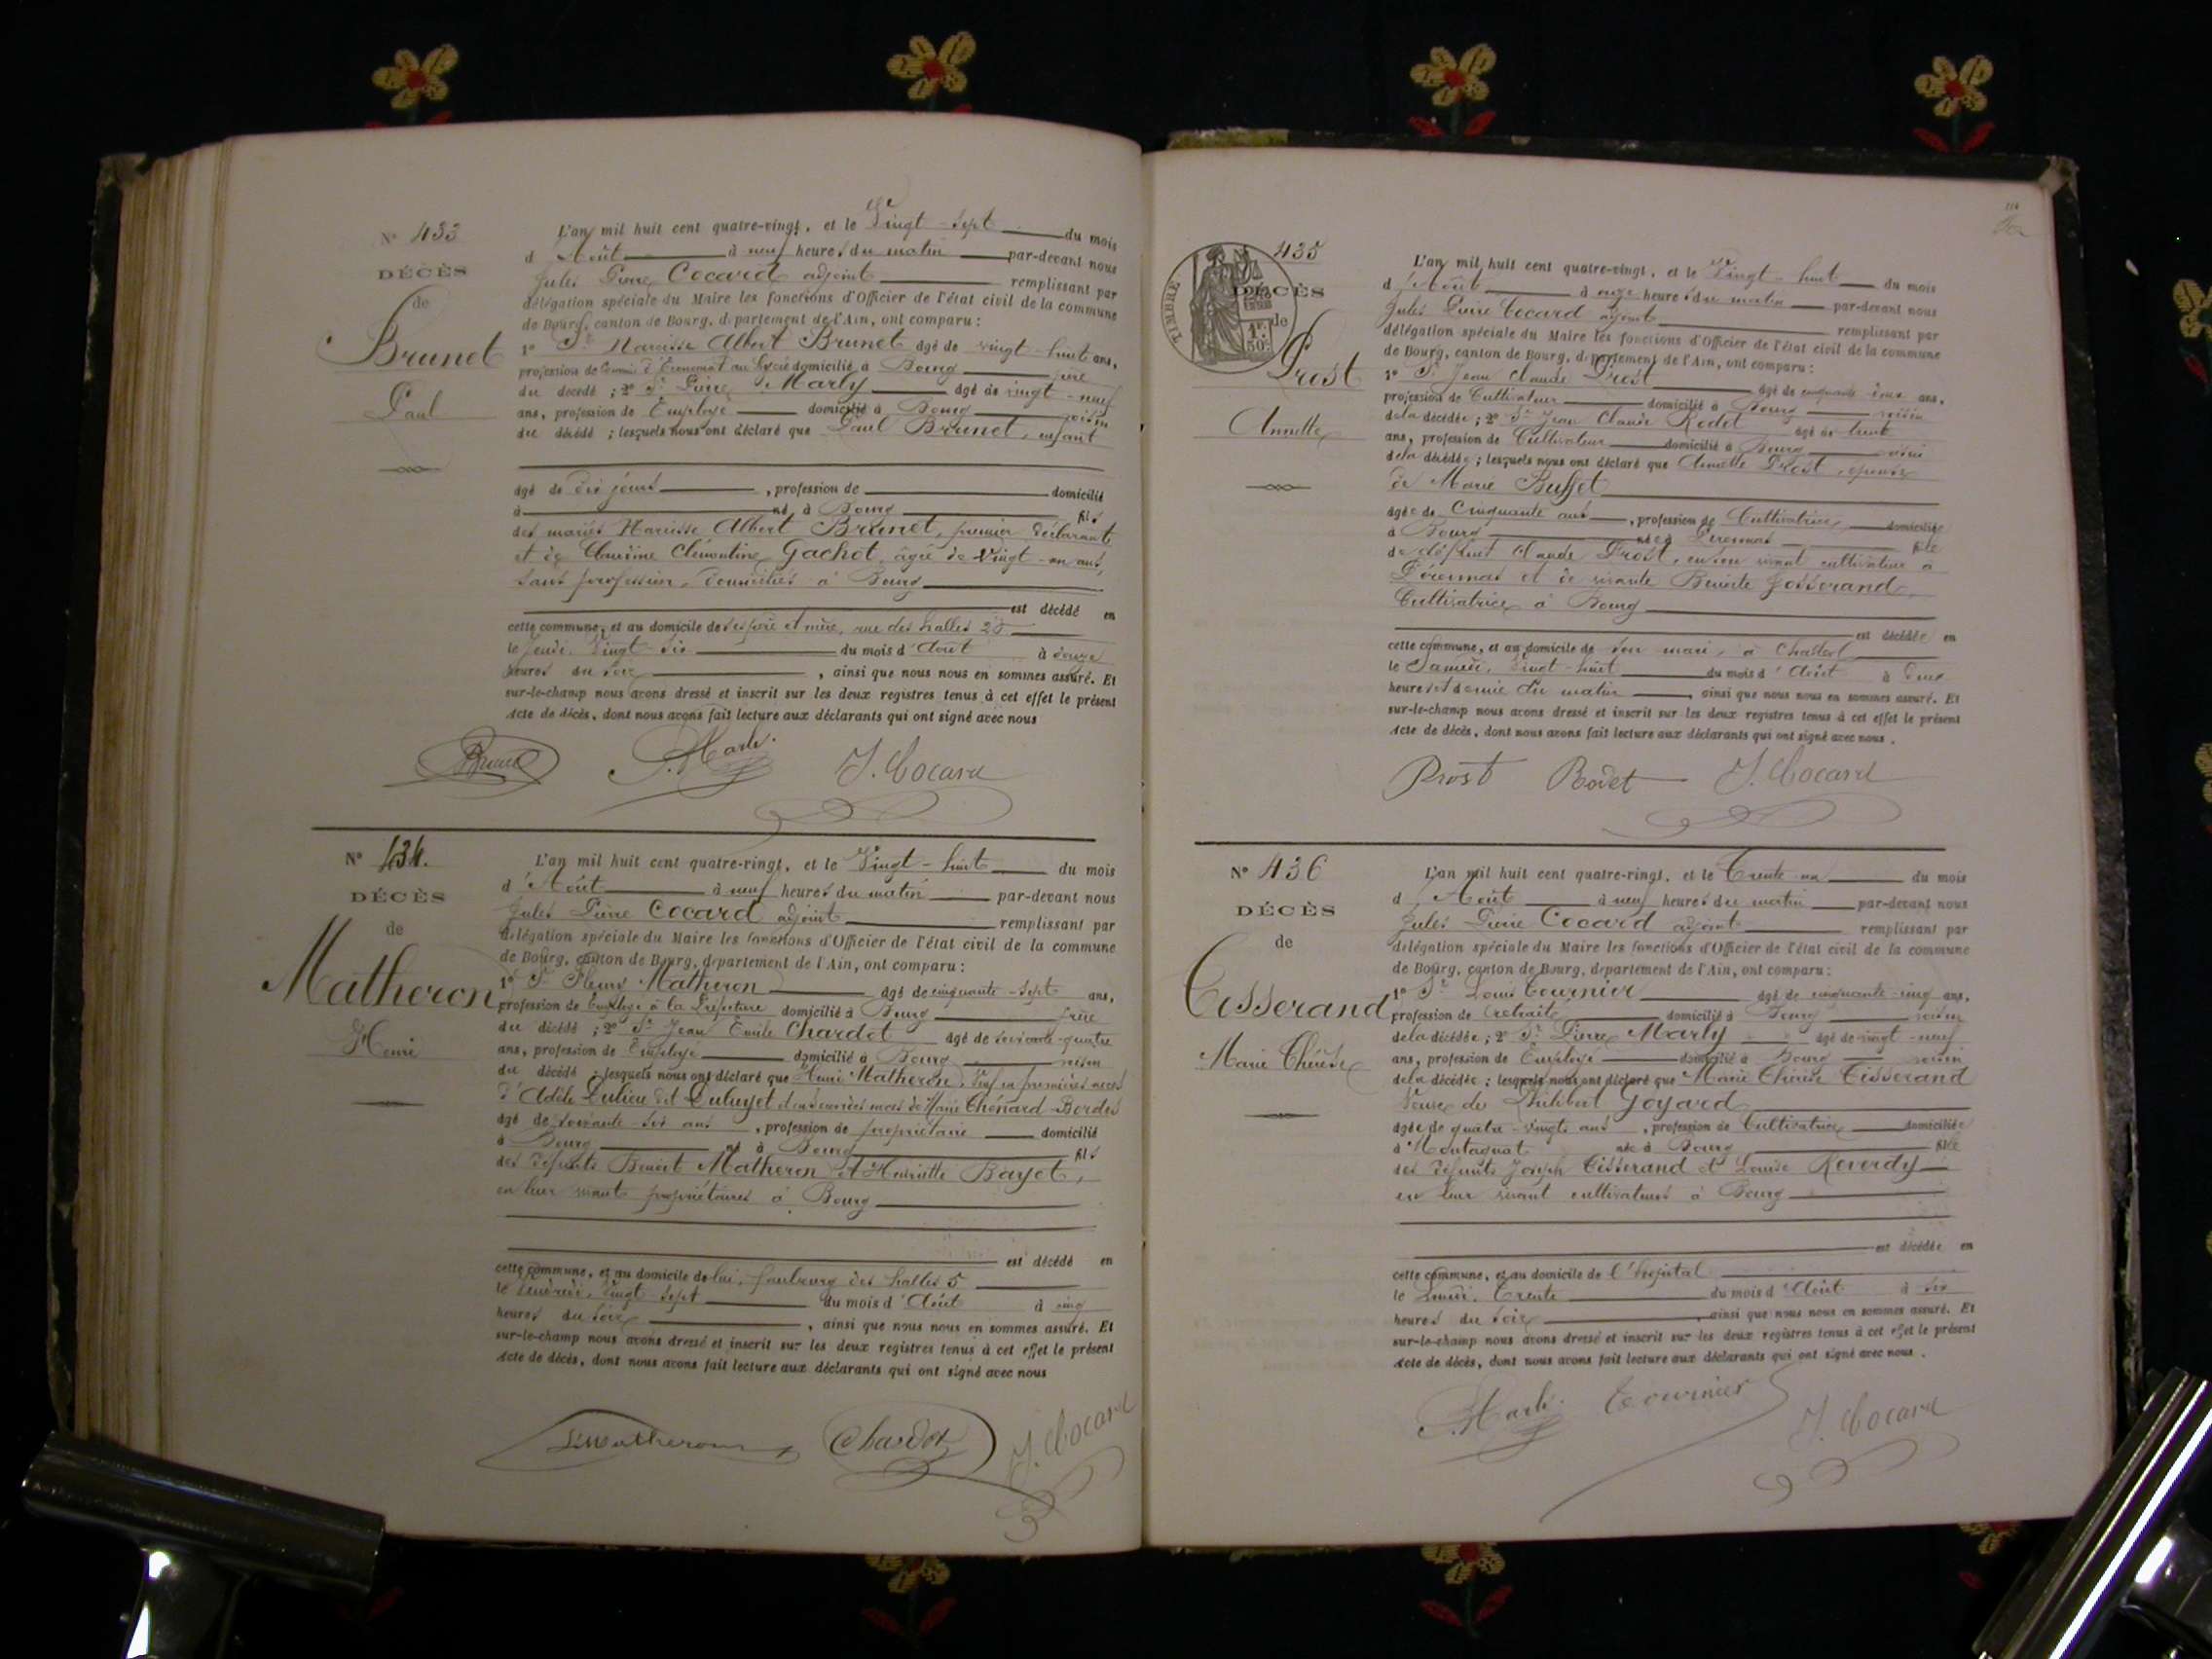 N° 433
DÉCÈS
de
Brunet
Paul
L'an mil huit cent quatre-vingt, et le Vingt-Sept du mois
d'Août à neuf heures du matin par-devant nous
Jules Pierre Cocard adjoint remplissant par
délégation spéciale du Maire les fonctions d'Officier de l'état civil de la commune
de Bourg, canton de Bourg, département de l'Ain, ont comparu :
1° Sr Narcisse Albert Brunet âgé de vingt-huit ans,
profession de Commis d'Economat au Lycée domicilié à Bourg père
du décédé ; 2° Sr Pierre Marly âgé de vingt-neuf
ans, profession de Employé domicilié à Bourg voisin
du décédé ; lesquels nous ont déclaré que Paul Brunet, enfant
âgé de dix jours, profession de domicilié
à né à Bourg fils
des mariés Narcisse Albert Brunet, premier déclarant
et de Claudine Clémentine Gachot, âgée de vingt-un ans,
sans profession, domiciliés à Bourg
est décédé en
cette commune, et au domicile de ses père et mère, rue des halles 25
le Jeudi, Vingt-Six du mois d'Août à douze
heures du soir, ainsi que nous nous en sommes assuré. Et
sur-le-champ nous avons dressé et inscrit sur les deux registres tenus à cet effet le présent
Acte de décès, dont nous avons fait lecture aux déclarants qui ont signé avec nous
Brunet P. Marly J. Cocard
N° 434.
DÉCÈS
de
Matheron
Henri
L'an mil huit cent quatre-vingt, et le Vingt-huit du mois
d'Août à neuf heures du matin par-devant nous
Jules Pierre Cocard adjoint remplissant par
délégation spéciale du Maire les fonctions d'Officier de l'état civil de la commune
de Bourg, canton de Bourg, département de l'Ain, ont comparu :
1° Sr Fleury Matheron âgé de cinquante-sept ans,
profession de Employé à la Préfecture domicilié à Bourg frère
du décédé ; 2° Sr Jean Emile Chardot âgé de soixante-quatre
ans, profession de Employé domicilié à Bourg voisin
du décédé ; lesquels nous ont déclaré que Henri Matheron, Veuf en premières noces
d'Adèle Julien dit et en secondes noces de Marie Chénard-Bordes
âgé de soixante-six ans, profession de propriétaire domicilié
à Bourg né à Bourg fils
des défunts Benoit Matheron et Henriette Bayet,
en leur vivant propriétaires à Bourg
est décédé en
cette commune, et au domicile de lui, faubourg des halles 5
le Vendredi, Vingt-Sept du mois d'Août à cinq
heures du soir, ainsi que nous nous en sommes assuré. Et
sur-le-champ nous avons dressé et inscrit sur les deux registres tenus à cet effet le présent
Acte de décès, dont nous avons fait lecture aux déclarants qui ont signé avec nous
Matheron Chardot J. Cocard
TIMBRE
1F. 50c.
435
DÉCÈS
de
Prost
Annette
L'an mil huit cent quatre-vingt, et le Vingt-huit du mois
d'Août à onze heures du matin par-devant nous
Jules Pierre Cocard adjoint remplissant par
délégation spéciale du Maire les fonctions d'Officier de l'état civil de la commune
de Bourg, canton de Bourg, département de l'Ain, ont comparu :
1° Sr Jean Claude Prost âgé de cinquante-deux ans,
profession de Cultivateur domicilié à Bourg voisin
de la décédée ; 2° Sr Jean Claude Rodet âgé de trente
ans, profession de Cultivateur domicilié à Bourg voisin
de la décédée ; lesquels nous ont déclaré que Annette Prost, épouse
de Marie Buffet
âgée de Cinquante ans, profession de Cultivatrice domiciliée
à Bourg née à Péronnas fille
de défunt Claude Prost, en son vivant cultivateur à
Péronnas et de vivante Benoite Josserand,
Cultivatrice à Bourg
est décédée en
cette commune, et au domicile de son mari, à
le Samedi, Vingt-huit du mois d'Août à deux
heures et demie du matin, ainsi que nous nous en sommes assuré. Et
sur-le-champ nous avons dressé et inscrit sur les deux registres tenus à cet effet le présent
Acte de décès, dont nous avons fait lecture aux déclarants qui ont signé avec nous.
Prost Rodet J. Cocard
N° 436
DÉCÈS
de
Tisserand
Marie Thérèse
L'an mil huit cent quatre-vingt, et le Trente-un du mois
d'Août à neuf heures du matin par-devant nous
Jules Pierre Cocard adjoint remplissant par
délégation spéciale du Maire les fonctions d'Officier de l'état civil de la commune
de Bourg, canton de Bourg, département de l'Ain, ont comparu :
1° Sr Louis Tournier âgé de cinquante-cinq ans,
profession de retraité domicilié à Bourg voisin
de la décédée ; 2° Sr Pierre Marly âgé de vingt-neuf
ans, profession de Employé domicilié à Bourg voisin
de la décédée ; lesquels nous ont déclaré que Marie Thérèse Tisserand
Veuve de Philibert Goyard
âgée de quatre-vingts ans, profession de Cultivatrice domiciliée
à Montagnat née à Bourg fille
des défunts Joseph Tisserand et Louise Reverdy
en leur vivant cultivateurs à Bourg
est décédée en
cette commune, et au domicile de l'hôpital
le Lundi, Trente du mois d'Août à six
heures du soir, ainsi que nous nous en sommes assuré. Et
sur-le-champ nous avons dressé et inscrit sur les deux registres tenus à cet effet le présent
Acte de décès, dont nous avons fait lecture aux déclarants qui ont signé avec nous.
P. Marly Tournier J. Cocard